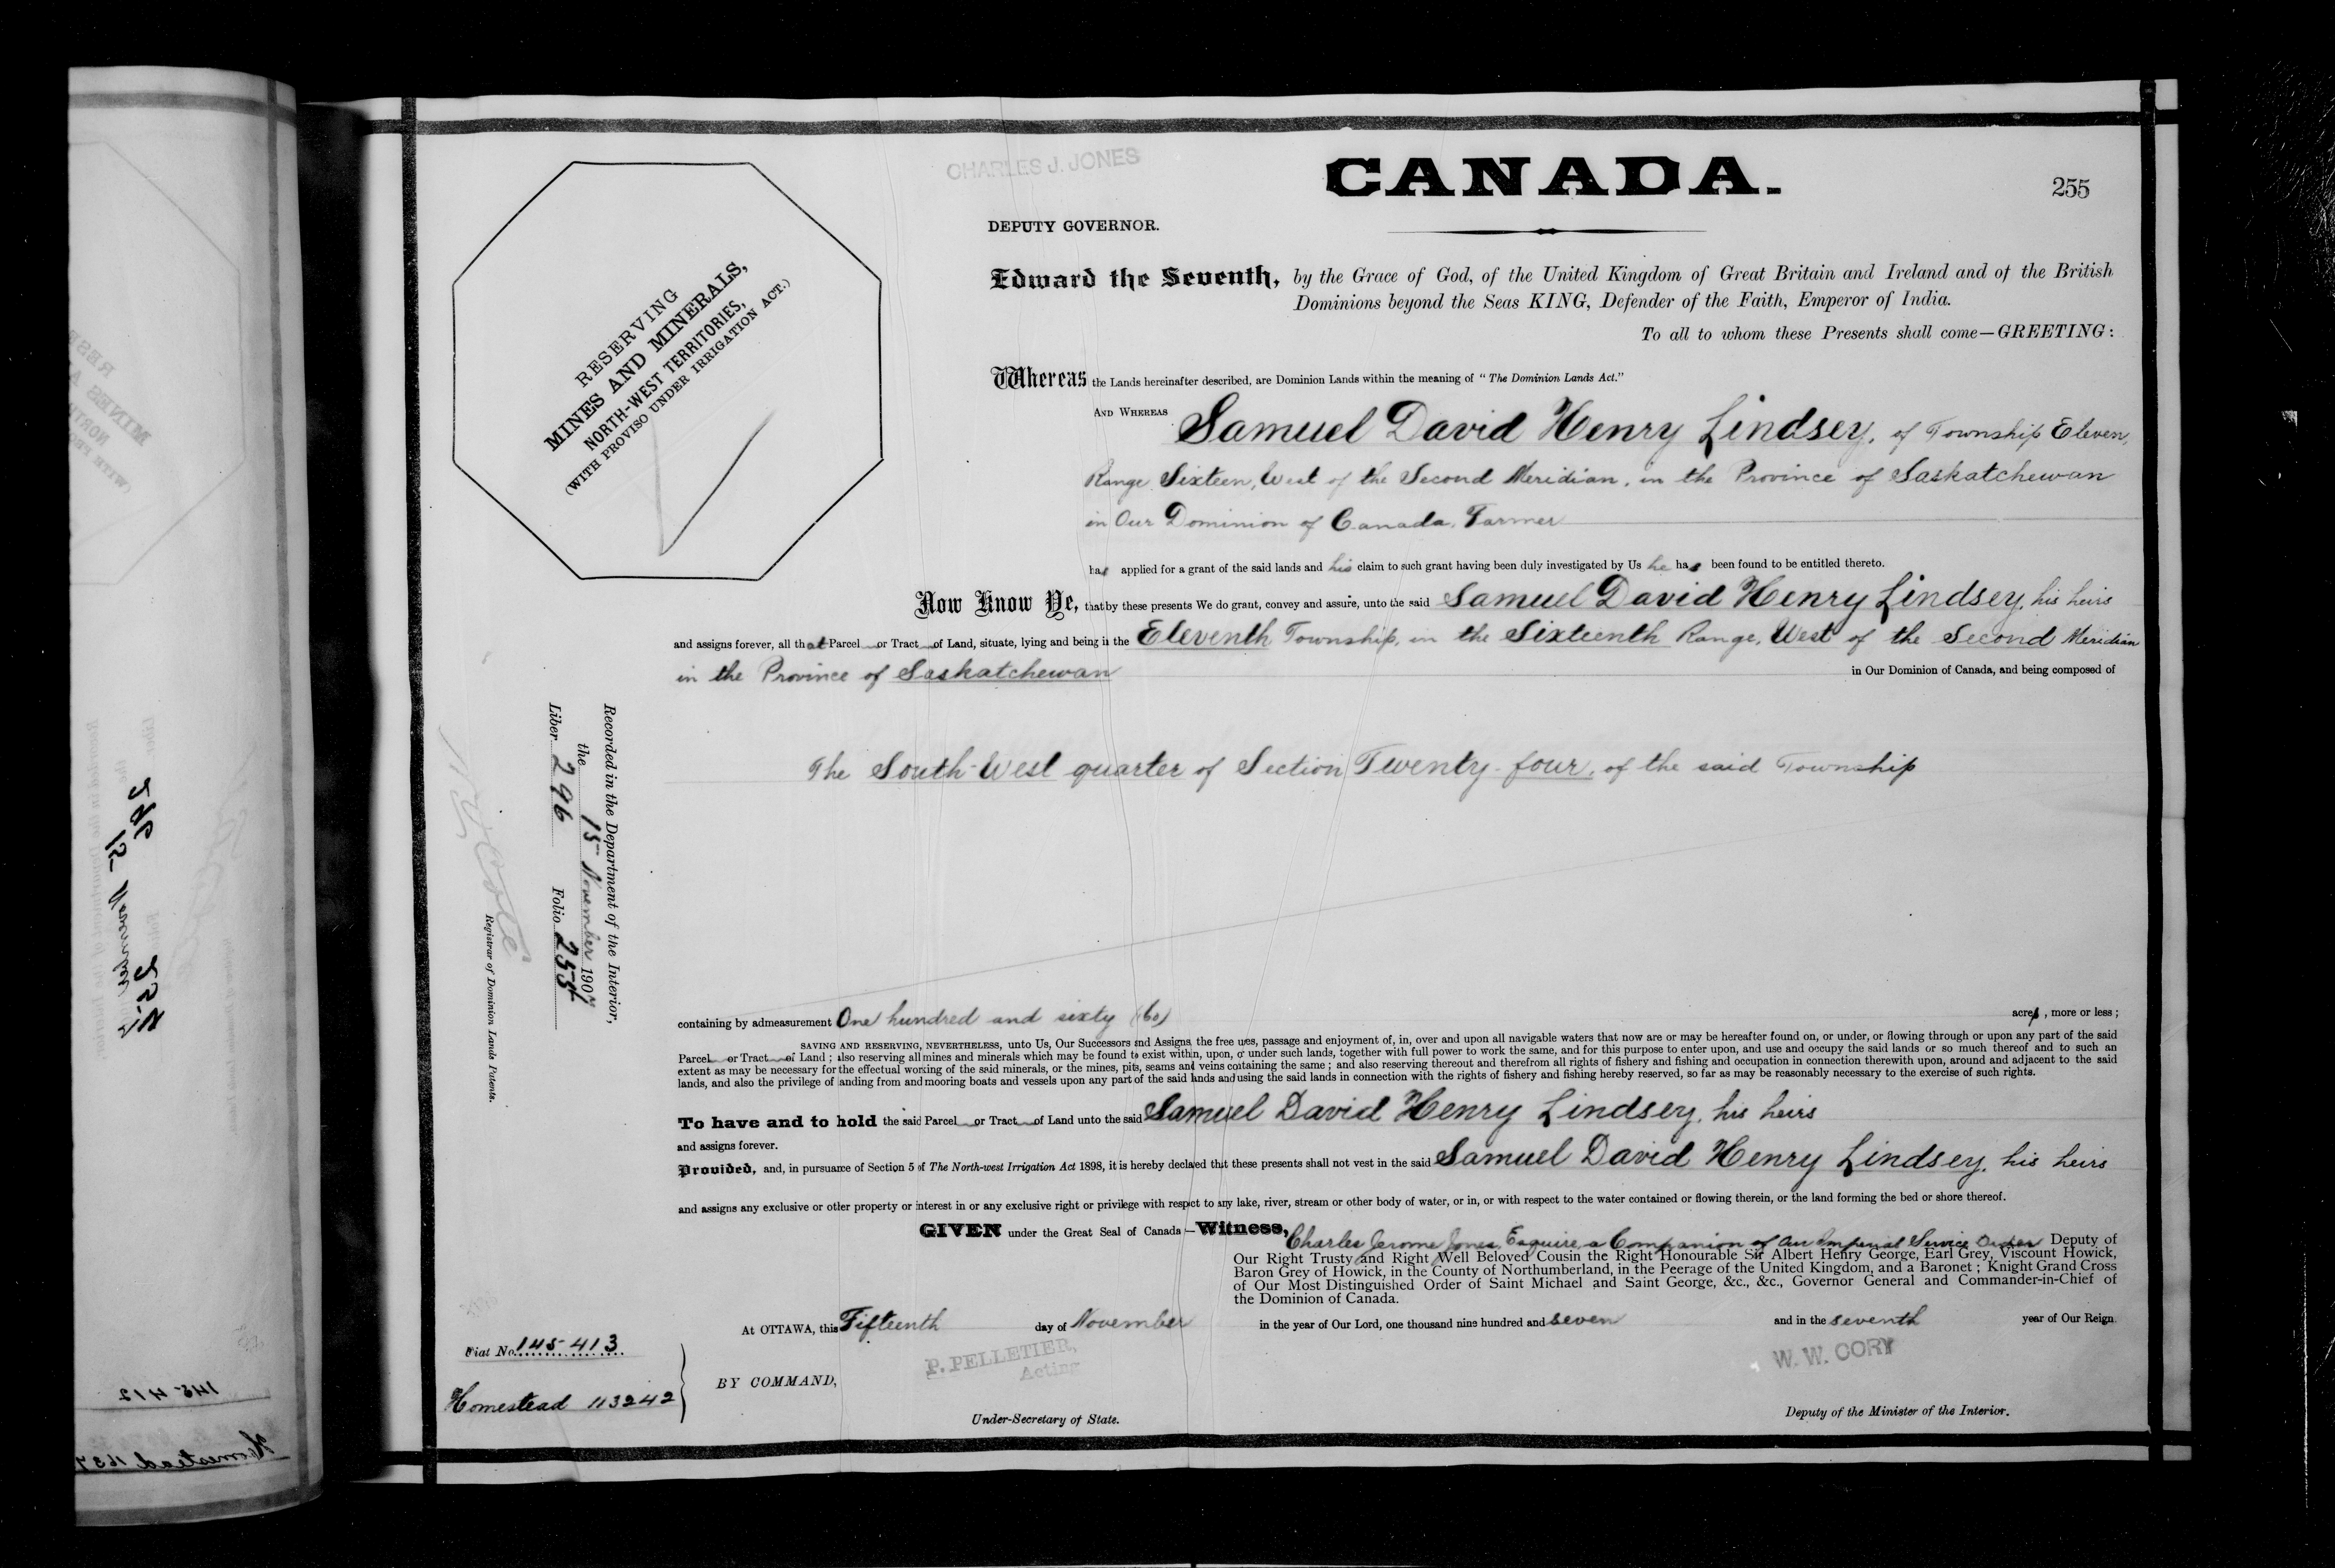 CHARLES J. JONES
CANADA.
255
DEPUTY GOVERNOR.
Edward the Seventh, by the Grace of God, of the United Kingdom of Great Britain and Ireland and of the British
Dominions beyond the Seas KING, Defender of the Faith, Emperor of India.
To all to whom these Presents shall come—GREETING:
RESERVING
MINES AND MINERALS,
NORTH-WEST TERRITORIES,
(WITH PROVISO UNDER IRRIGATION ACT.)
Whereas the Lands hereinafter described, are Dominion Lands within the meaning of "The Dominion Lands Act."
AND WHEREAS Samuel David Henry Lindsey, of Township Eleven,
Range Sixteen, West of the Second Meridian, in the Province of Saskatchewan
in Our Dominion of Canada, Farmer
has applied for a grant of the said lands and his claim to such grant having been duly investigated by Us he has been found to be entitled thereto.
Now Know Ye, that by these presents We do grant, convey and assure, unto the said Samuel David Henry Lindsey, his heirs
and assigns forever, all that Parcel or Tract of Land, situate, lying and being in the Eleventh Township, in the Sixteenth Range, West of the Second Meridian
in the Province of Saskatchewan in Our Dominion of Canada, and being composed of
The South-West quarter of Section Twenty-four, of the said Township
Recorded in the Department of the Interior,
the 15 November 1907
Liber 296 Folio 255
Registrar of Dominion Lands Patents.
containing by admeasurement One hundred and sixty (160) acres, more or less;
SAVING AND RESERVING, NEVERTHELESS, unto Us, Our Successors and Assigns, the free uses, passage and enjoyment of, in, over and upon all navigable waters that now are or may be hereafter found on, or under, or flowing through or upon any part of the said
Parcel or Tract of Land; also reserving all mines and minerals which may be found to exist within, upon, or under such lands, together with full power to work the same, and for this purpose to enter upon, and use and occupy the said lands or so much thereof and to such an
extent as may be necessary for the effectual working of the said minerals, or the mines, pits, seams and veins containing the same; and also reserving thereout and therefrom all rights of fishery and fishing and occupation in connection therewith upon, around and adjacent to the said
lands, and also the privilege of landing from and mooring boats and vessels upon any part of the said lands and using the said lands in connection with the rights of fishery and fishing hereby reserved, so far as may be reasonably necessary to the exercise of such rights.
To have and to hold the said Parcel or Tract of Land unto the said Samuel David Henry Lindsey, his heirs
and assigns forever.
Provided, and, in pursuance of Section 5 of The North-west Irrigation Act 1898, it is hereby declared that these presents shall not vest in the said Samuel David Henry Lindsey, his heirs
and assigns any exclusive or other property or interest in or any exclusive right or privilege with respect to any lake, river, stream or other body of water, or in, or with respect to the water contained or flowing therein, or the land forming the bed or shore thereof.
GIVEN under the Great Seal of Canada—Witness, Charles Jerome Jones, Esquire, a Companion of Our Imperial Service Order Deputy of
Our Right Trusty and Right Well Beloved Cousin the Right Honourable Sir Albert Henry George, Earl Grey, Viscount Howick,
Baron Grey of Howick, in the County of Northumberland, in the Peerage of the United Kingdom, and a Baronet; Knight Grand Cross
of Our Most Distinguished Order of Saint Michael and Saint George, &c., &c., Governor General and Commander-in-Chief of
the Dominion of Canada.
At OTTAWA, this Fifteenth day of November in the year of Our Lord, one thousand nine hundred and seven and in the seventh year of Our Reign.
Fiat No. 145413
Homestead 113242
BY COMMAND,
P. PELLETIER,
Acting
Under-Secretary of State.
W. W. CORY
Deputy of the Minister of the Interior.